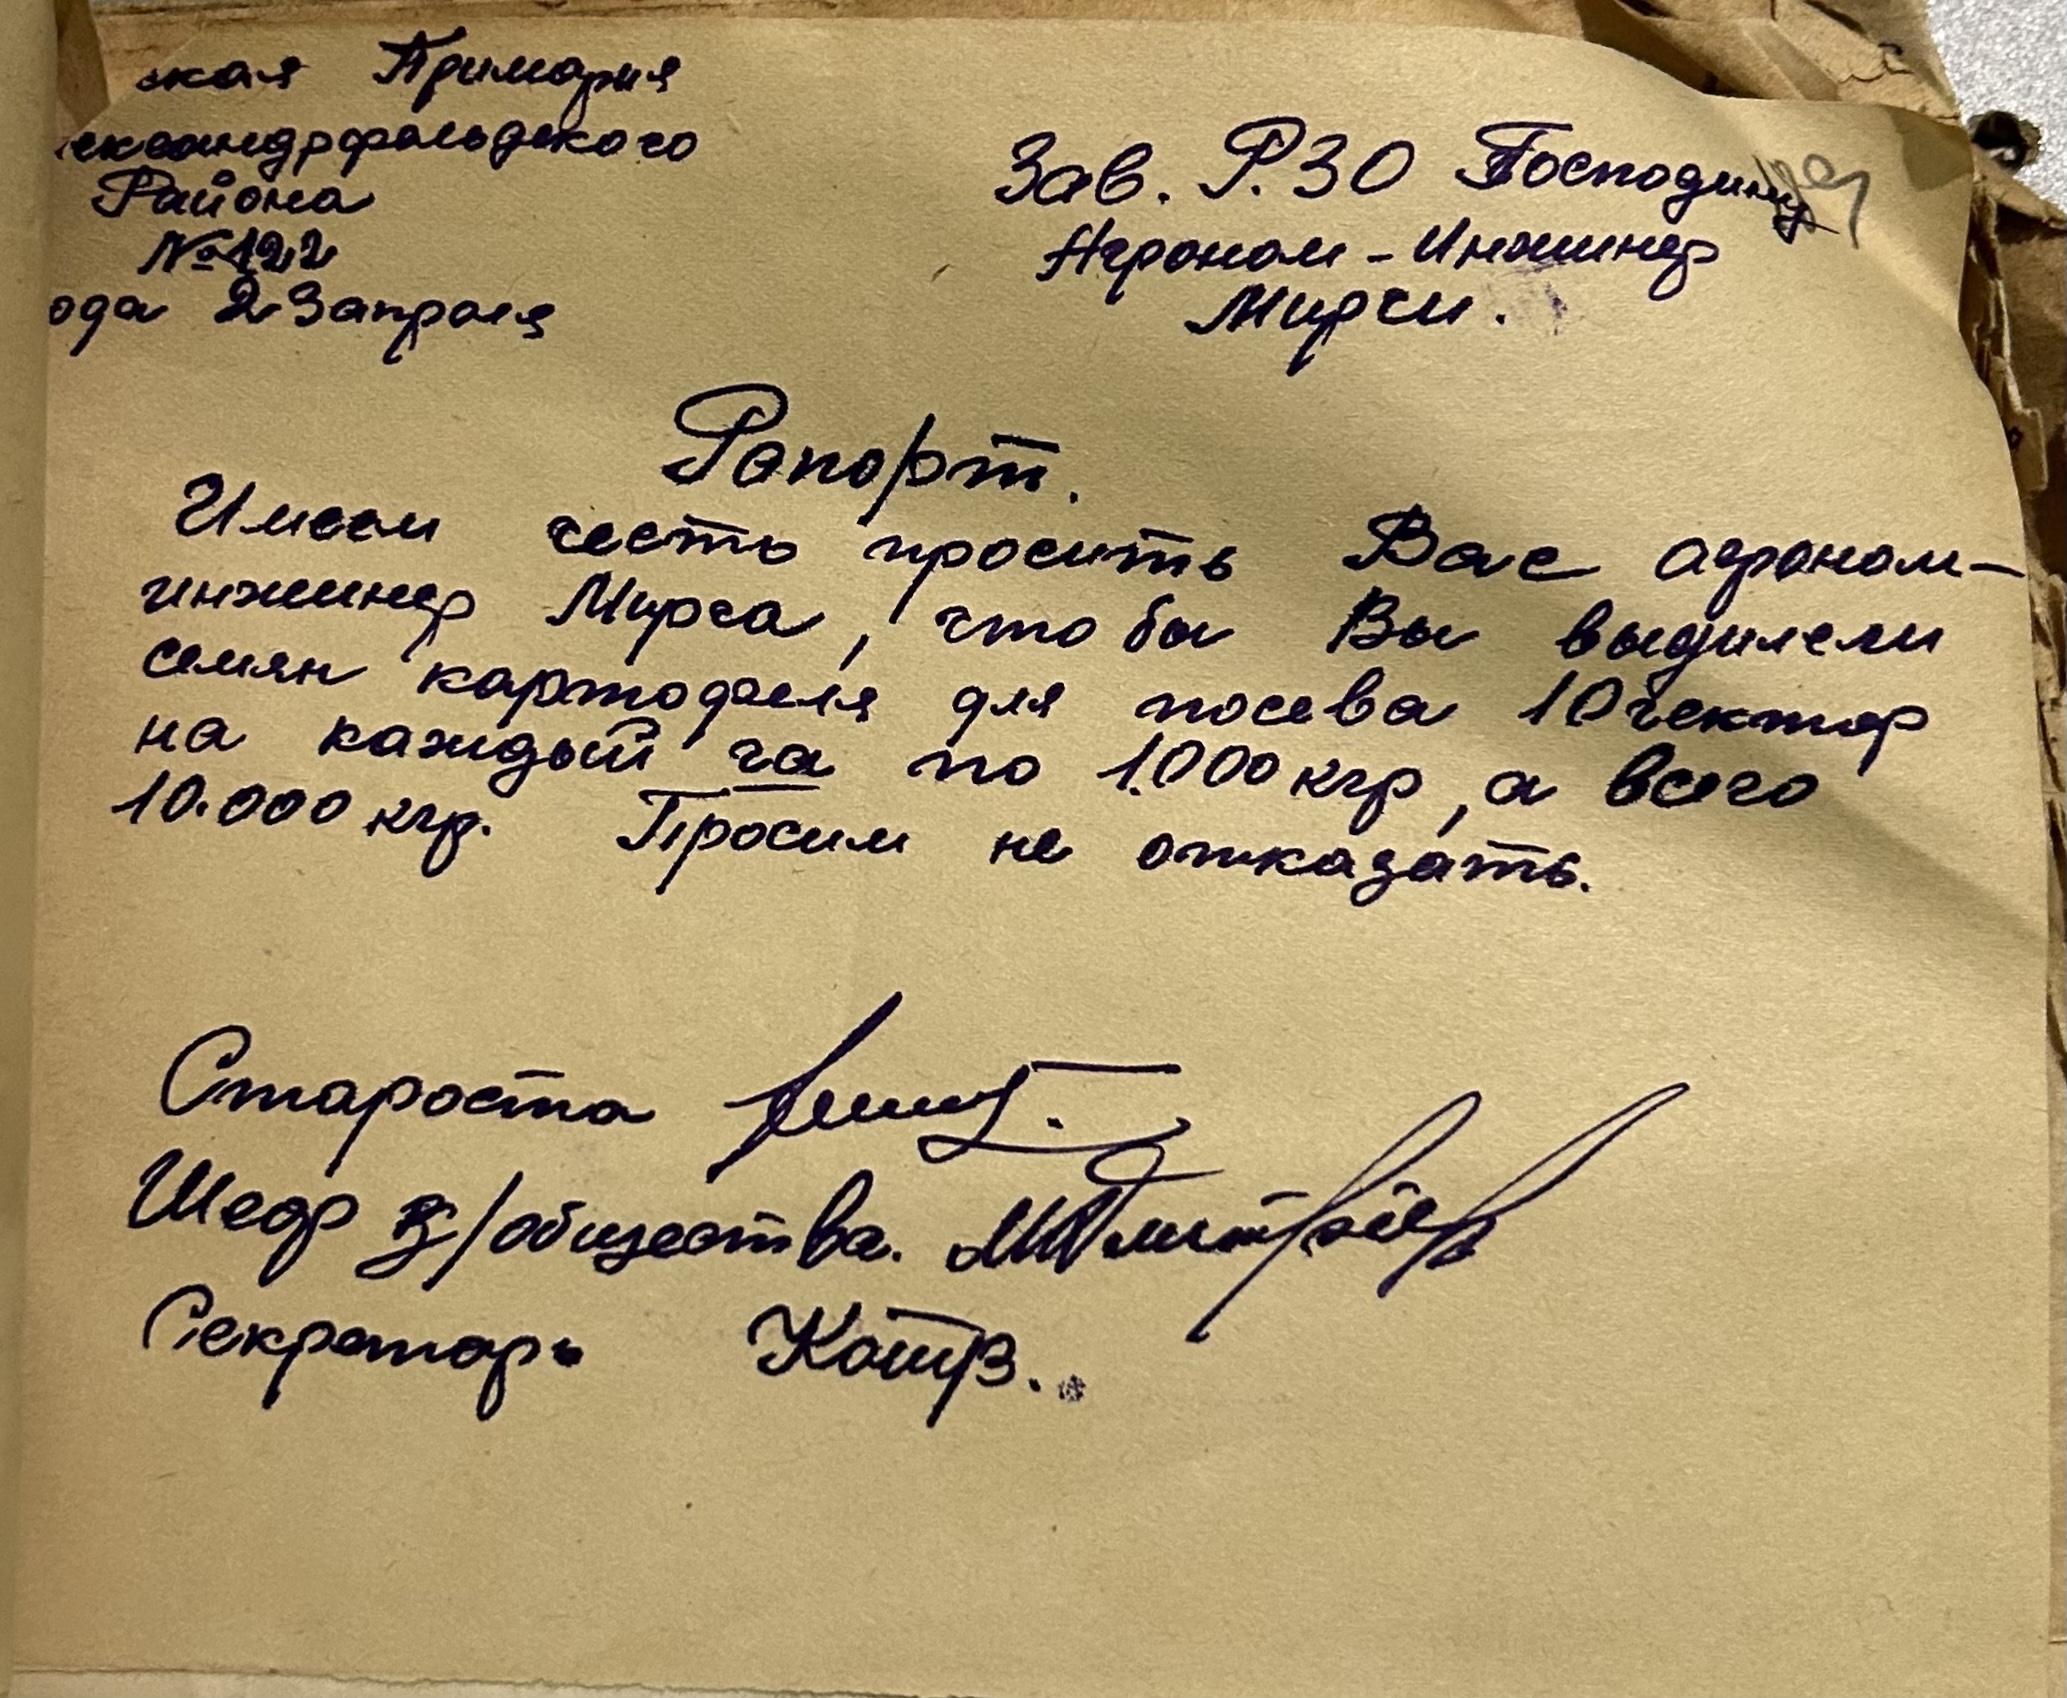 ская Примария
ександрфельдского
Района
№ 122
ода 23 апреля
Зав. Р.ЗО Господину
Агроном-Инжинер
Мирчи.
Рапорт.
Имеем честь просить Вас агроном-
инжинер Мирча, чтобы Вы выдилели
семян картофеля для посева 10 гектар
на каждый га по 1.000 кгр, а всего
10.000 кгр. Просим не отказать.
Староста
Шеф з/общества.
Секретарь